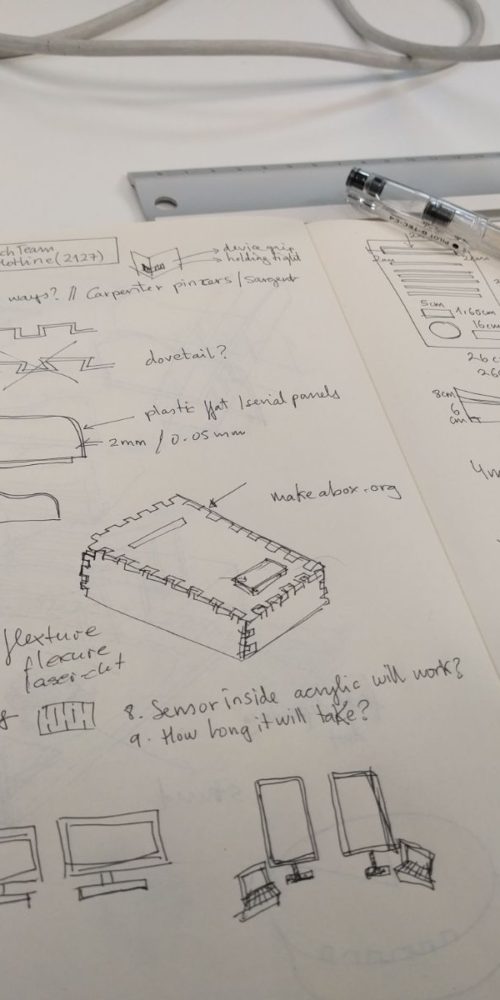 Team
Hotline (2127)
device grip
holding tight
ways? // Carpenter pincers / Sargent
dovetail?
plastic flat / serial panels
2mm / 0.05 mm
makeabox.org
flexture
flexure
laser-cut
8. Sensor inside acrylic will work?
9. How long it will take?
PILOT
5cm
1.60cm
16cm
26c
8cm
6
cm